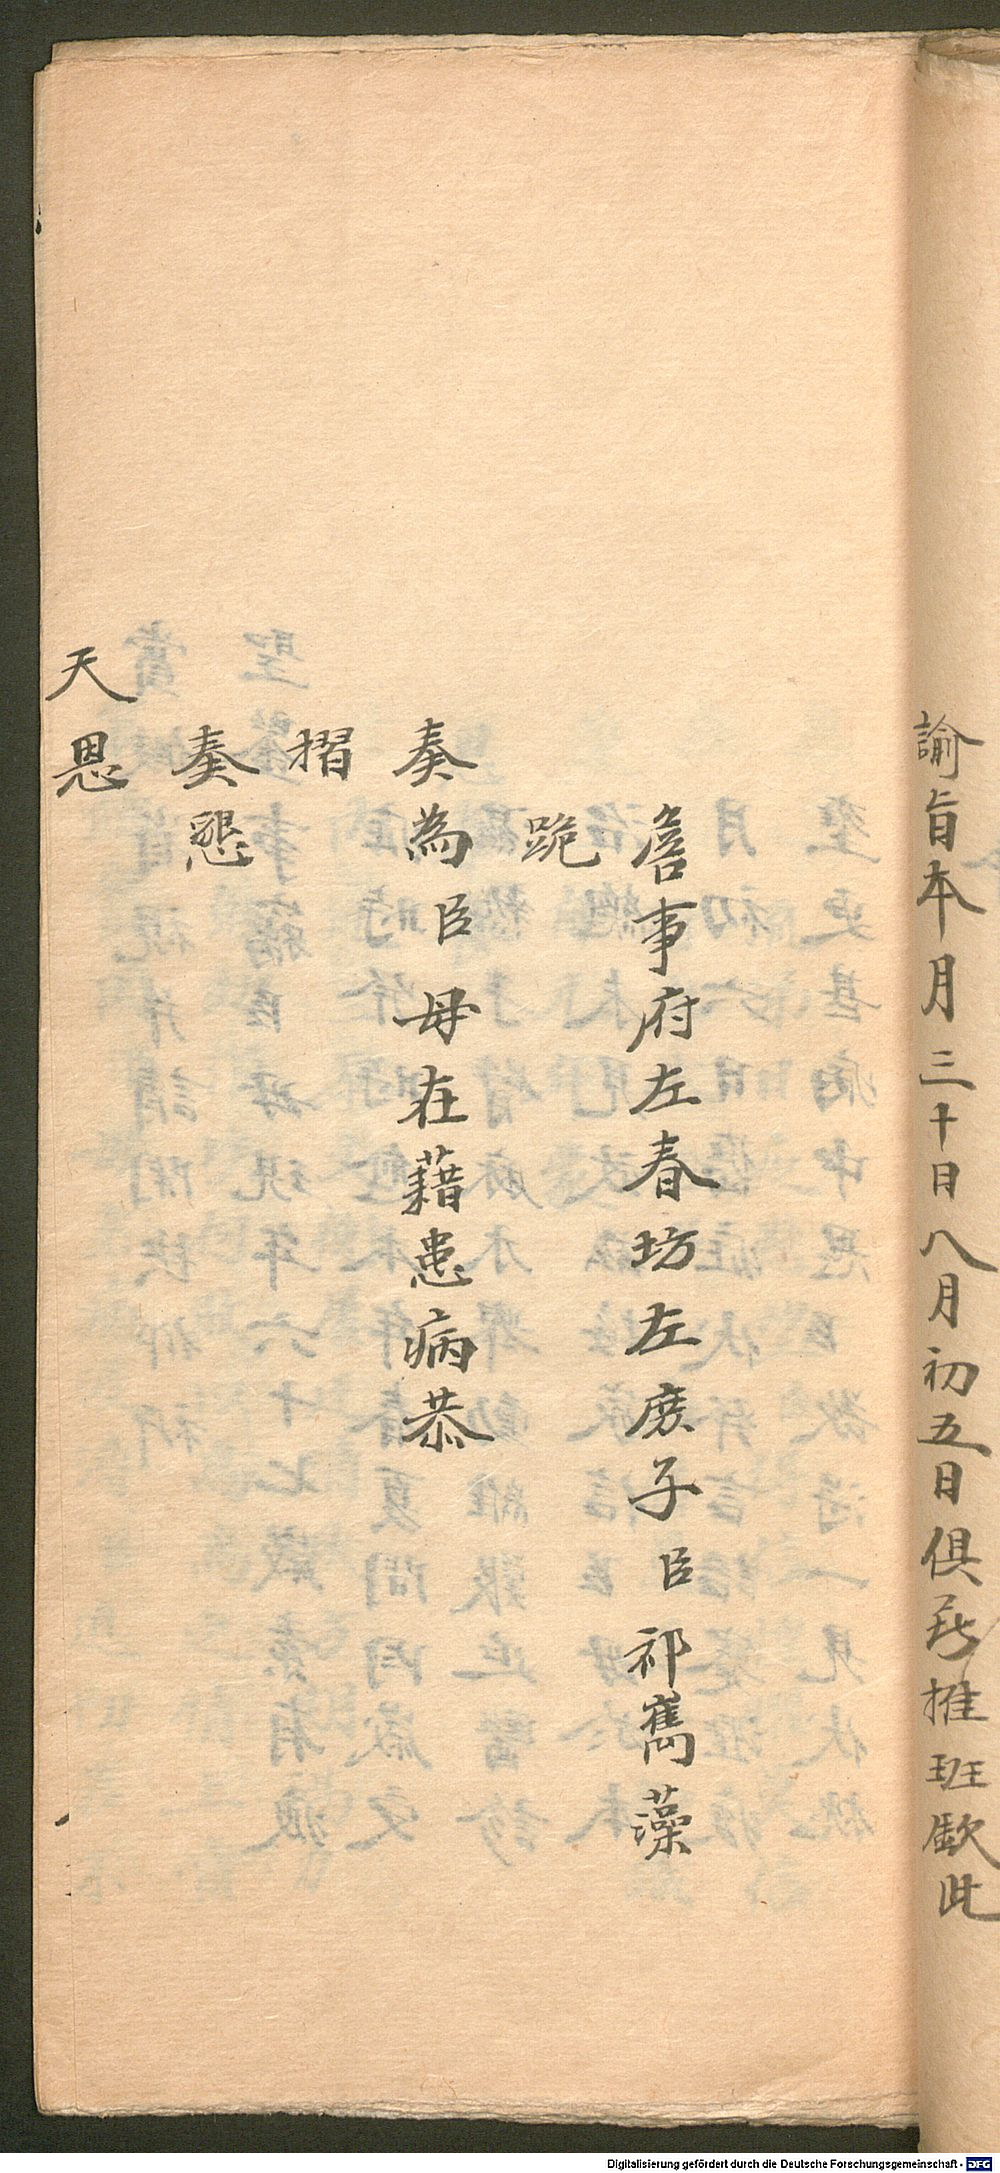 諭旨本月三十日八月初五日俱无推班欽此
詹事府左春坊左庶子臣祁寯藻
跪
奏為臣母在藉患病恭
摺
奏懇
天恩
Digitalisierung gefördert durch die Deutsche Forschungsgemeinschaft - DFG